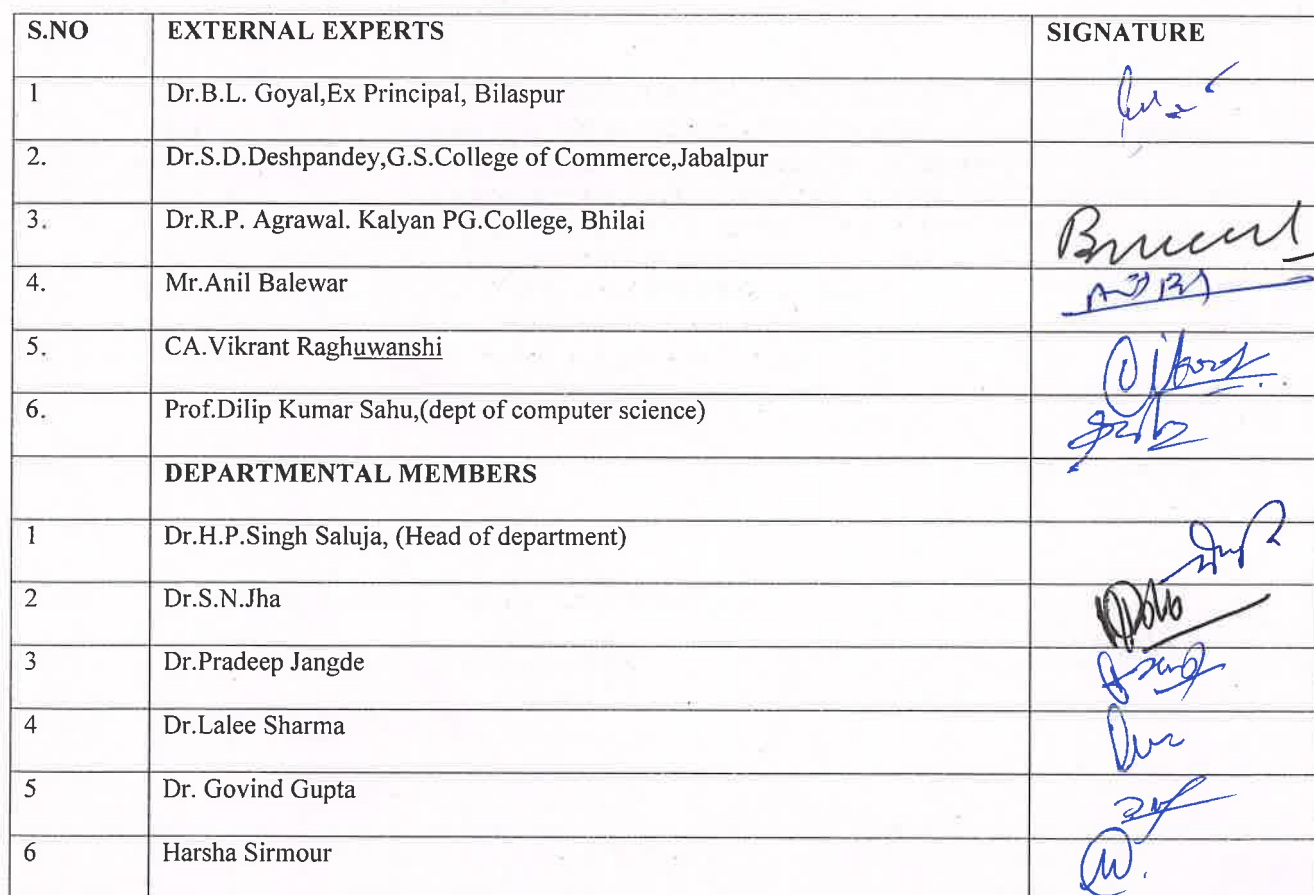 S.NO EXTERNAL EXPERTS SIGNATURE
1 Dr.B.L. Goyal,Ex Principal, Bilaspur
2. Dr.S.D.Deshpandey,G.S.College of Commerce,Jabalpur
3. Dr.R.P. Agrawal. Kalyan PG.College, Bhilai
4. Mr.Anil Balewar
5. CA.Vikrant Raghuwanshi
6. Prof.Dilip Kumar Sahu,(dept of computer science)
DEPARTMENTAL MEMBERS
1 Dr.H.P.Singh Saluja, (Head of department)
2 Dr.S.N.Jha
3 Dr.Pradeep Jangde
4 Dr.Lalee Sharma
5 Dr. Govind Gupta
6 Harsha Sirmour